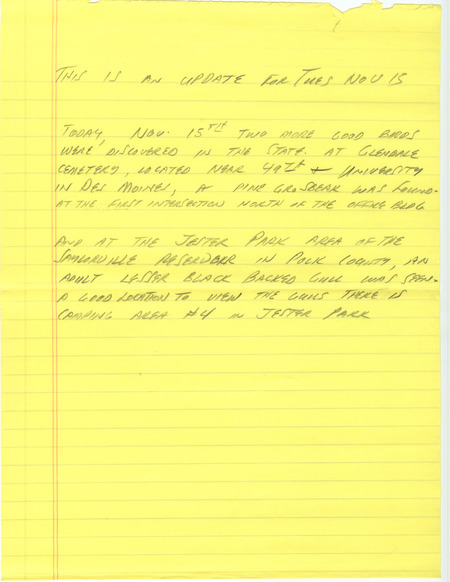 THIS IS AN UPDATE FOR TUES NOV 15
TODAY, NOV. 15TH TWO MORE GOOD BIRDS
WERE DISCOVERED IN THE STATE. AT GLENDALE
CEMETERY, LOCATED NEAR 49TH + UNIVERSITY
IN DES MOINES, A PINE GROSBEAK WAS FOUND-
AT THE FIRST INTERSECTION NORTH OF THE OFFICE BLDG
AND AT THE JESTER PARK AREA OF THE
SAYLORVILLE RESERVOIR IN POLK COUNTY, AN
ADULT LESSER BLACK BACKED GULL WAS SEEN-
A GOOD LOCATION TO VIEW THE GULLS THERE IS
CAMPING AREA #4 IN JESTER PARK